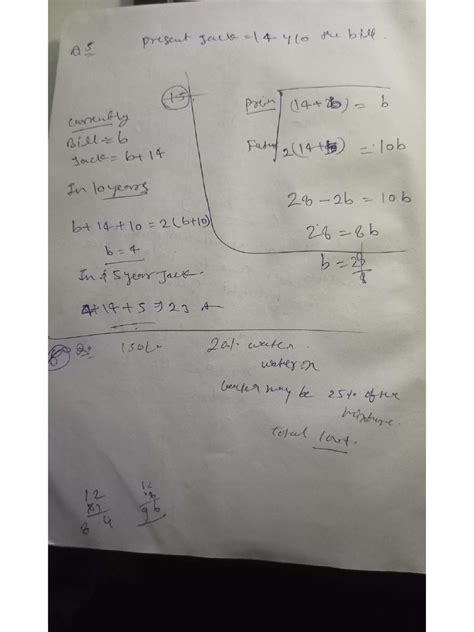 Q 5 present Jack = 14 y/o the bill.
15
Currently
Bill = b
Jack = b + 14
In 10 years
b + 14 + 10 = 2 (b+10)
b = 4
In 5 year Jack.
4 + 14 + 5 ⇒ 23 A
(14 + b) = b
2(14 + b) = 10b
28 - 2b = 10b
28 = 8b
b = 28/8
150L. 20% water.
water may be 25% of the
mixture.
total
12
8 4
12
96